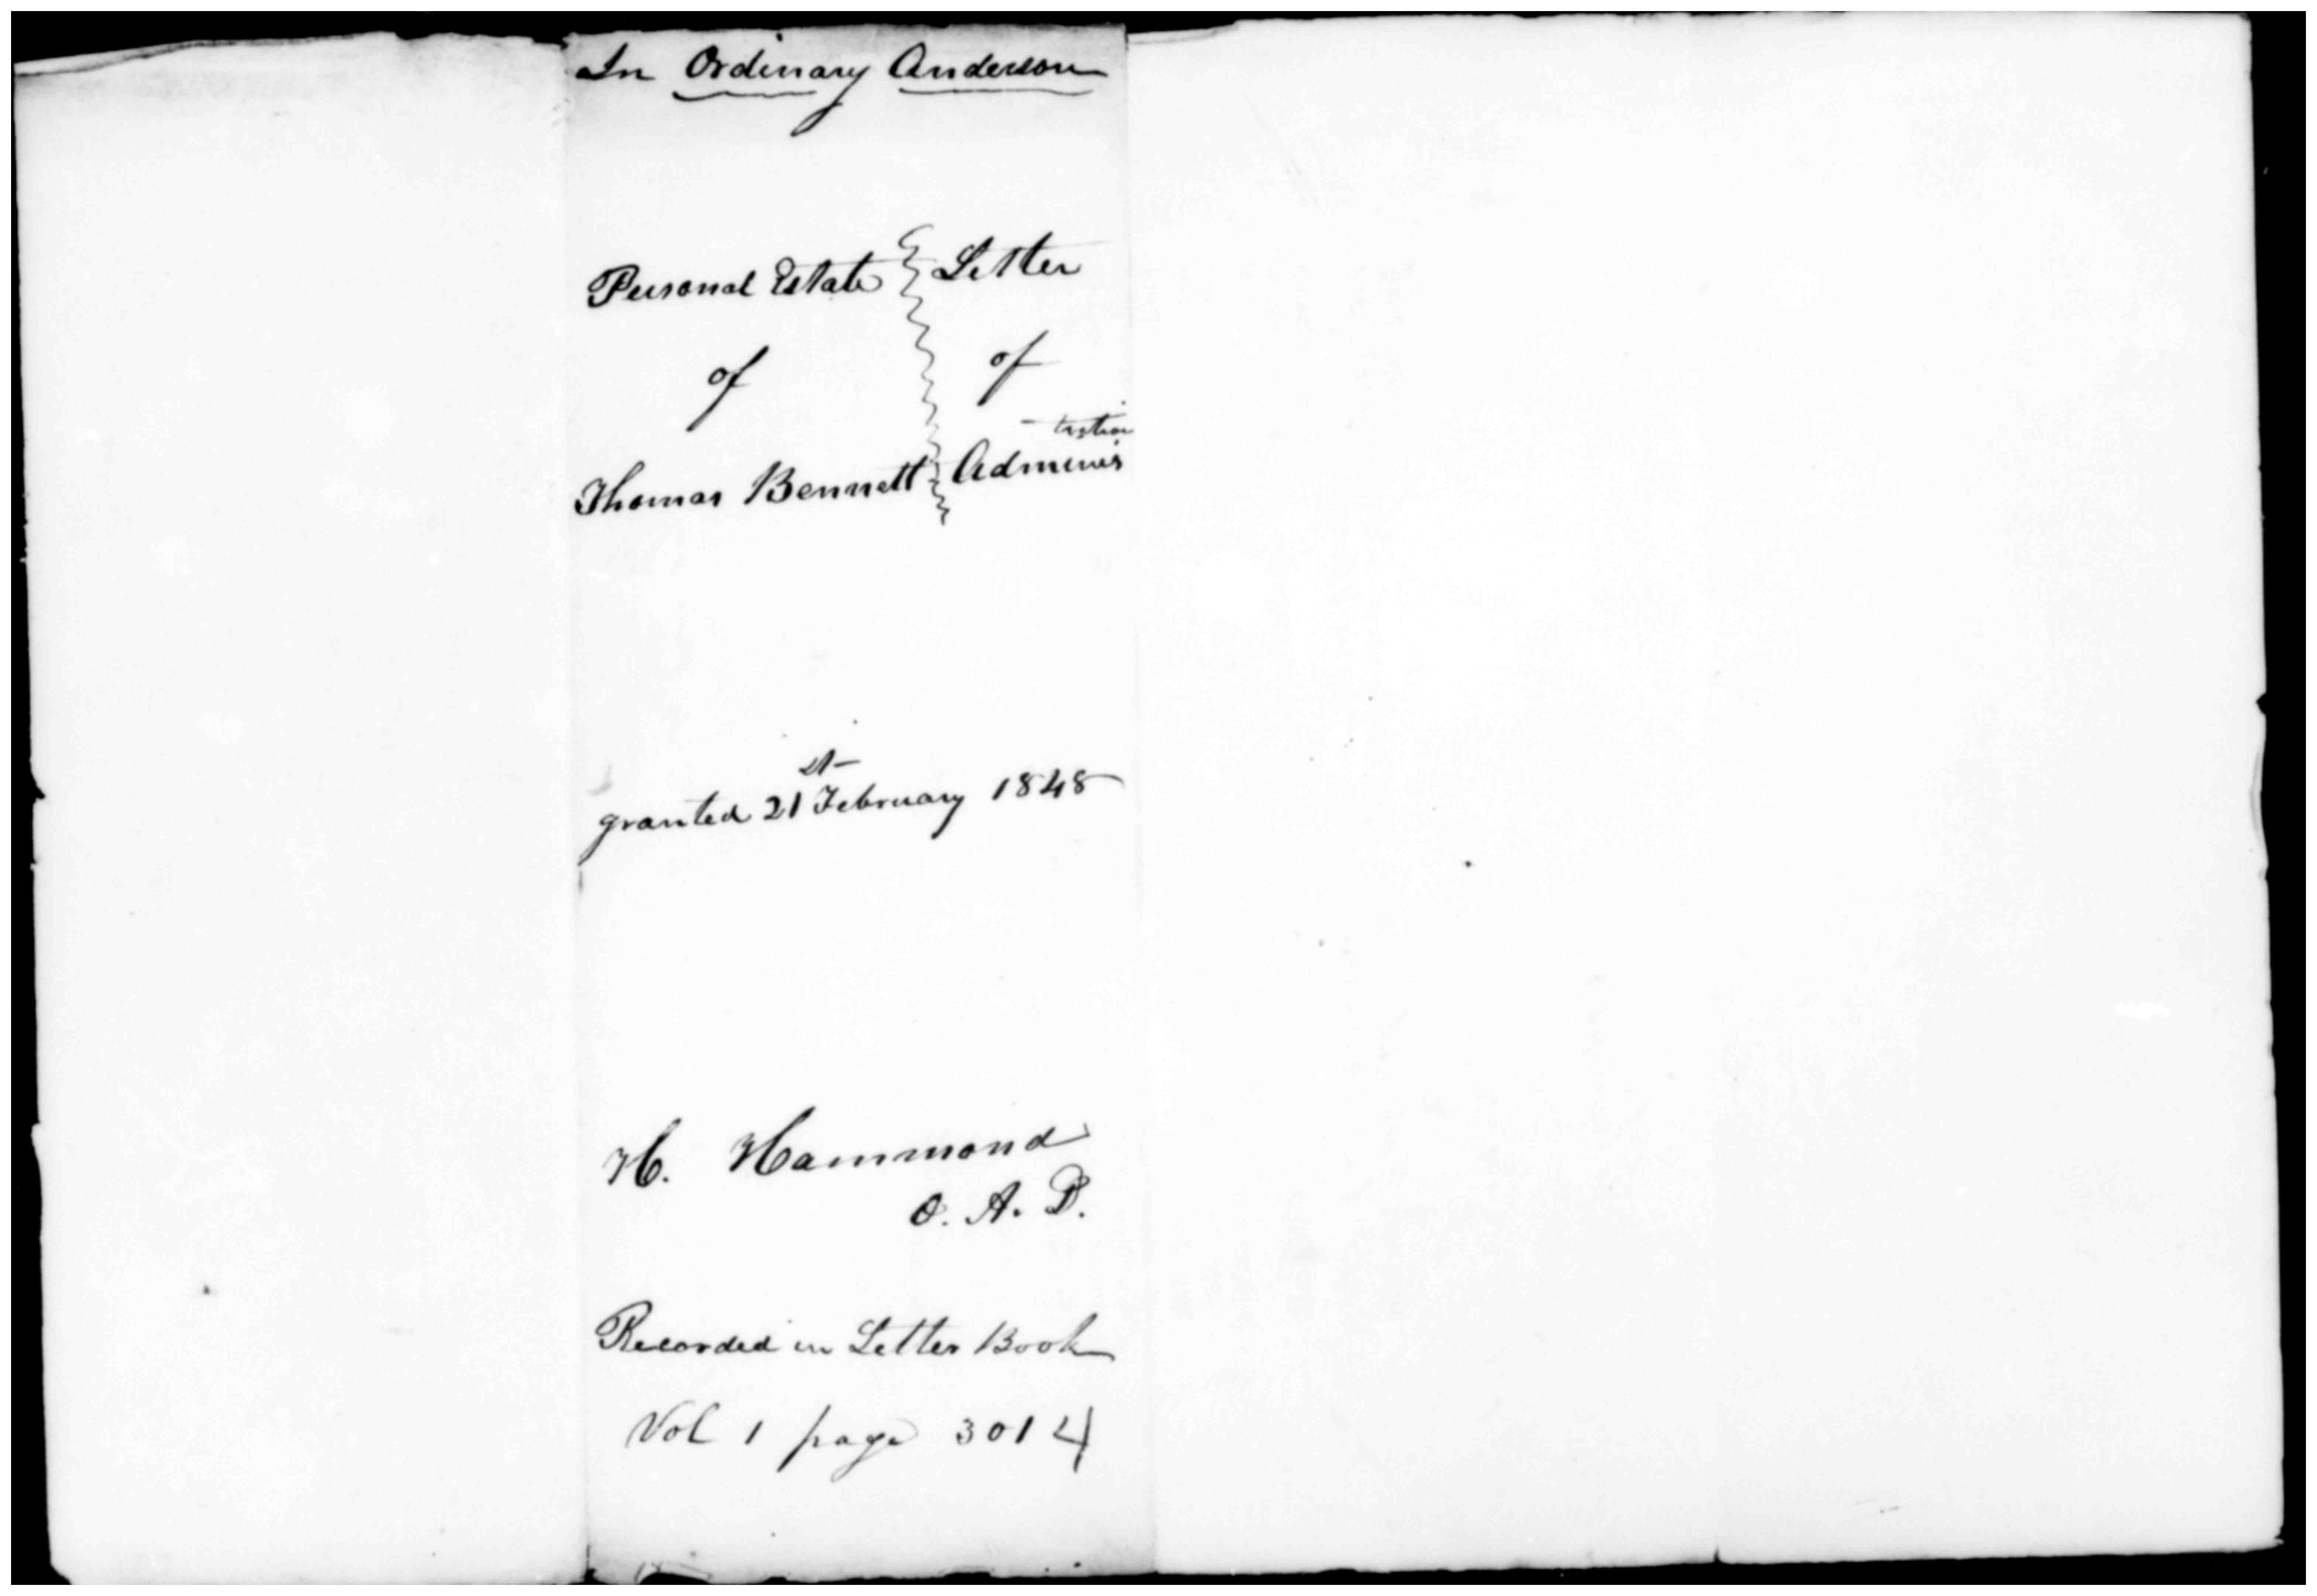 In Ordinary Anderson
Personal Estate
of
Thomas Bennett
Letter
of
Adminis
tration
granted 21st February 1848
H. Hammond
O. A. D.
Recorded in Letter Book
Vol 1 page 301 4